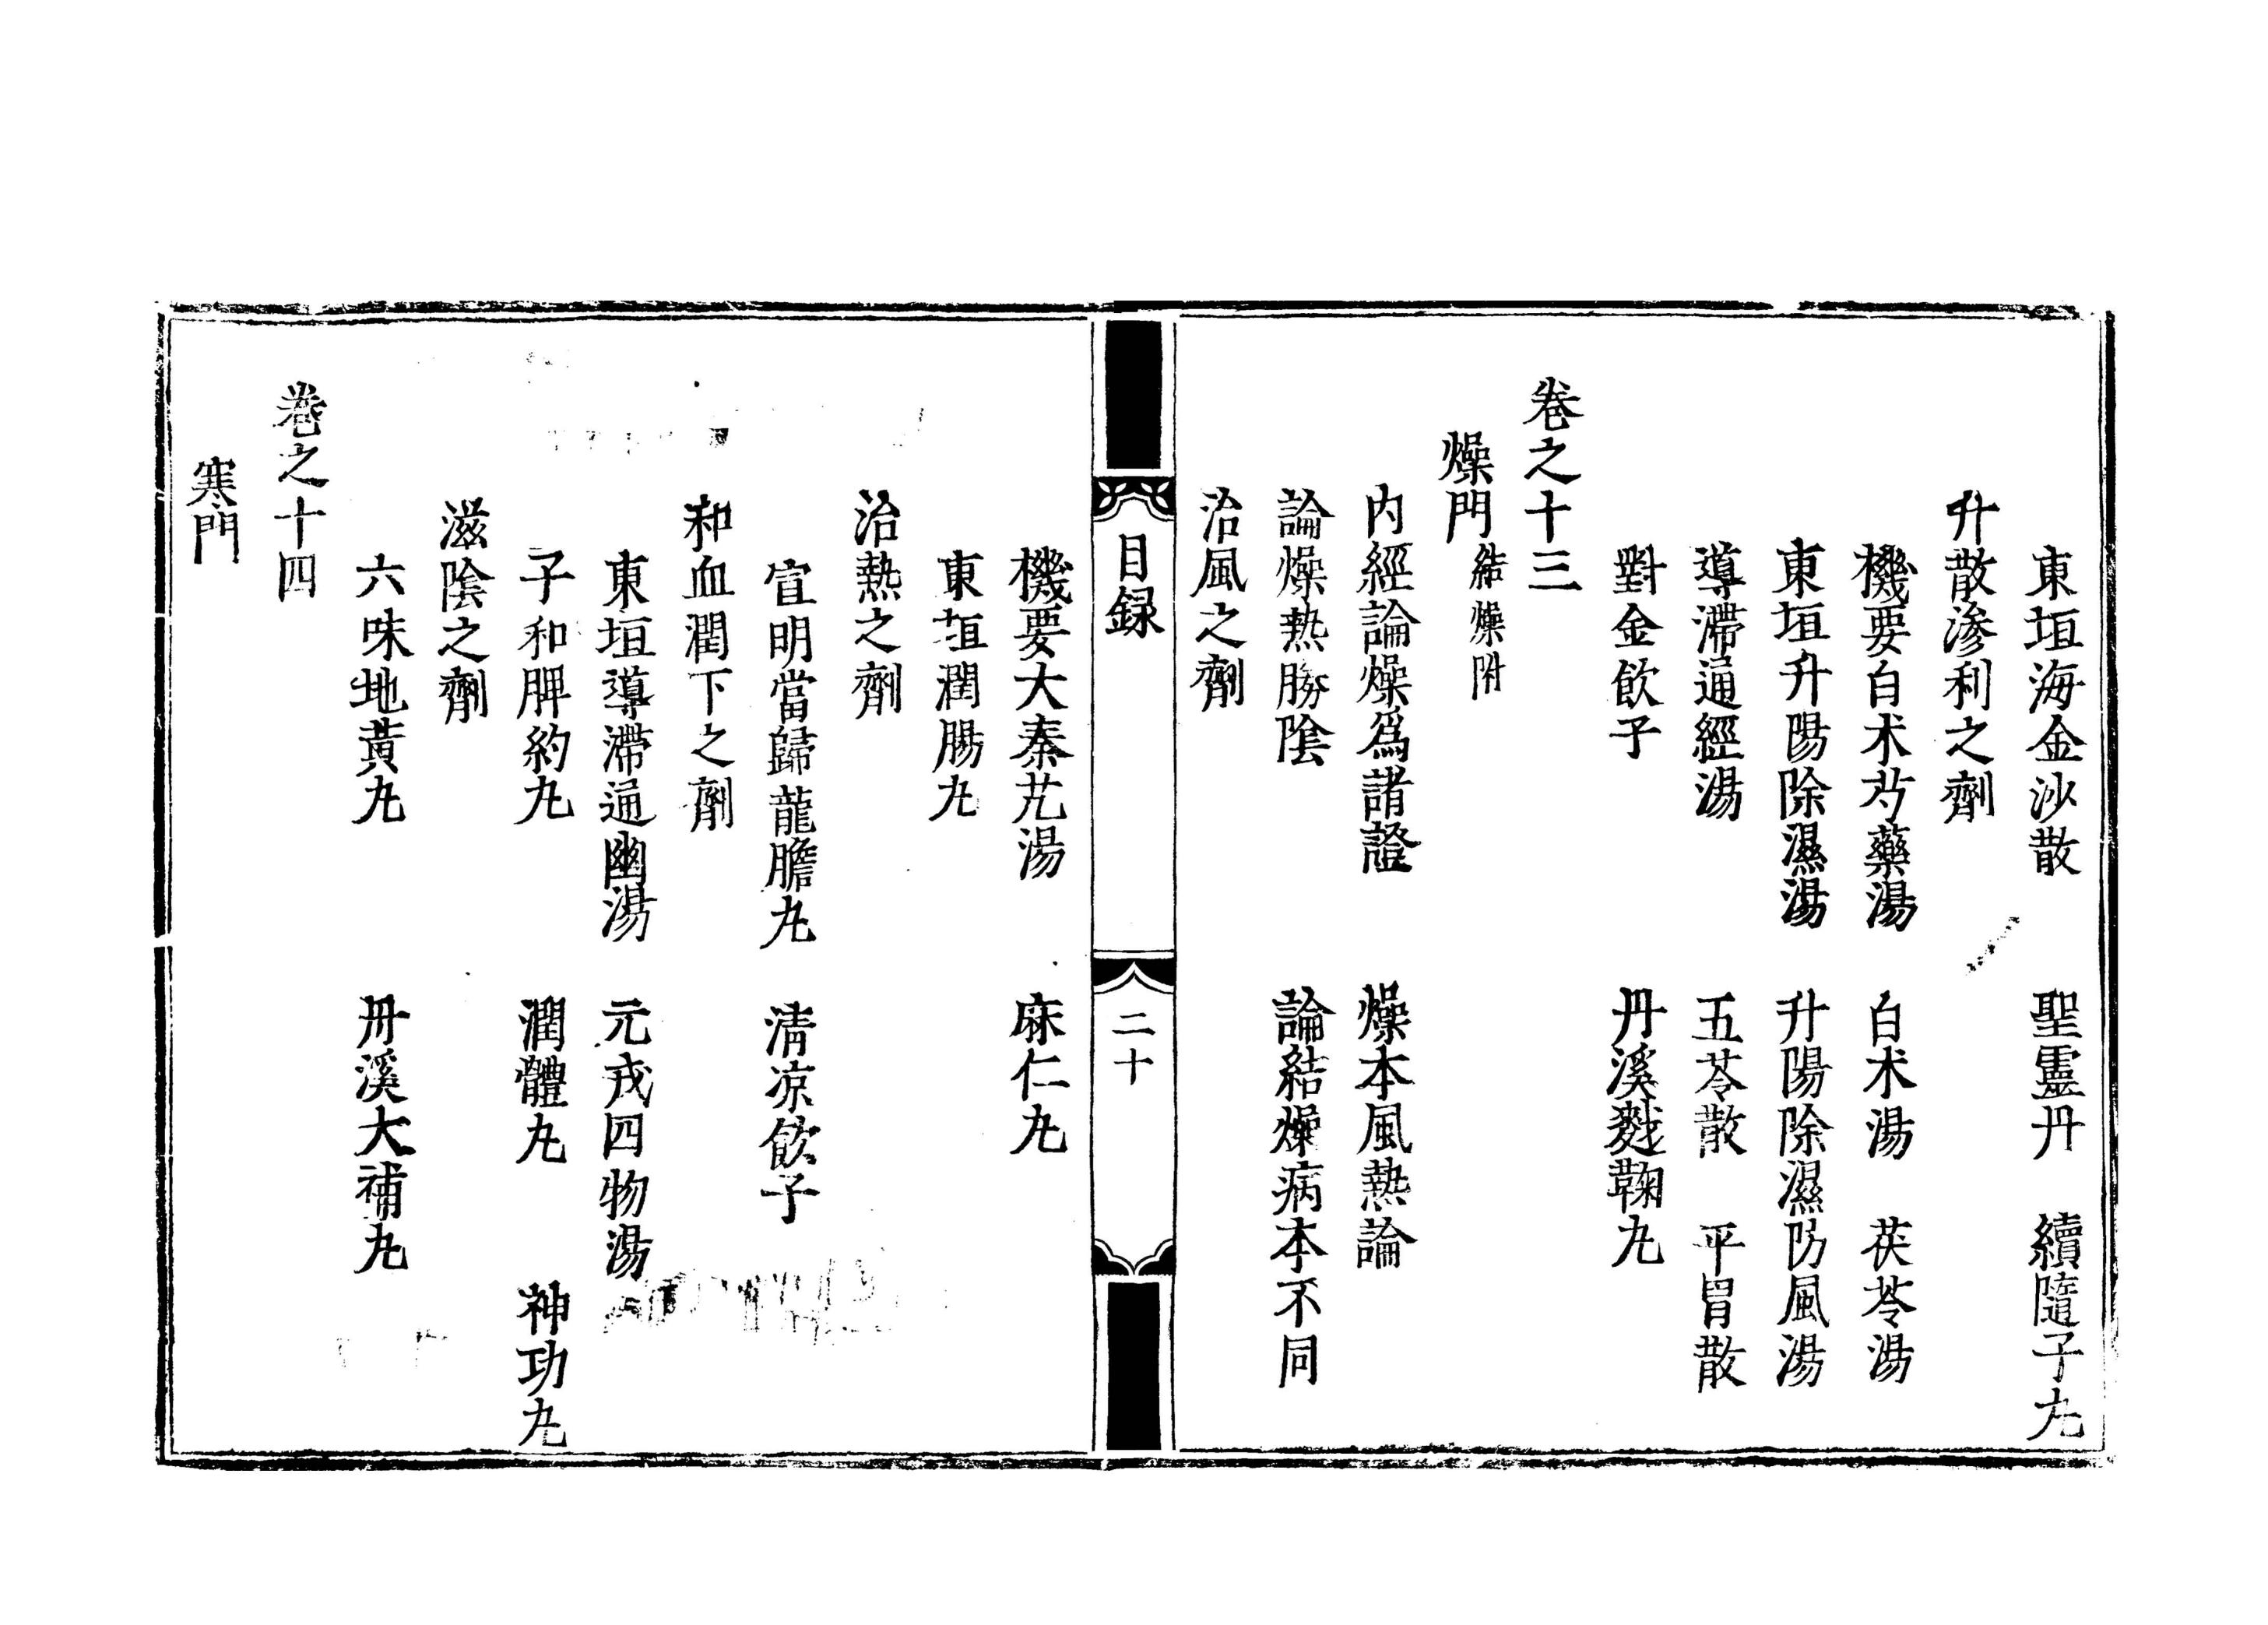 東垣海金沙散　聖靈丹　續隨子丸
升散滲利之劑
機要白朮芍藥湯　白朮湯　茯苓湯
東垣升陽除濕湯　升陽除濕防風湯
導滯通經湯　五苓散　平胃散
對金飲子　丹溪麴鞠丸
卷之十三
燥門 結燥附
內經論燥爲諸證　燥本風熱論
論燥熱勝陰　論結燥病本不同
治風之劑
目録　二十
機要大秦艽湯　麻仁丸
東垣潤腸丸
治熱之劑
宣明當歸龍膽丸　清凉飲子
和血潤下之劑
東垣導滯通幽湯　元戎四物湯
子和脾約丸　潤體丸　神功丸
滋陰之劑
六味地黃丸　丹溪大補丸
卷之十四
寒門